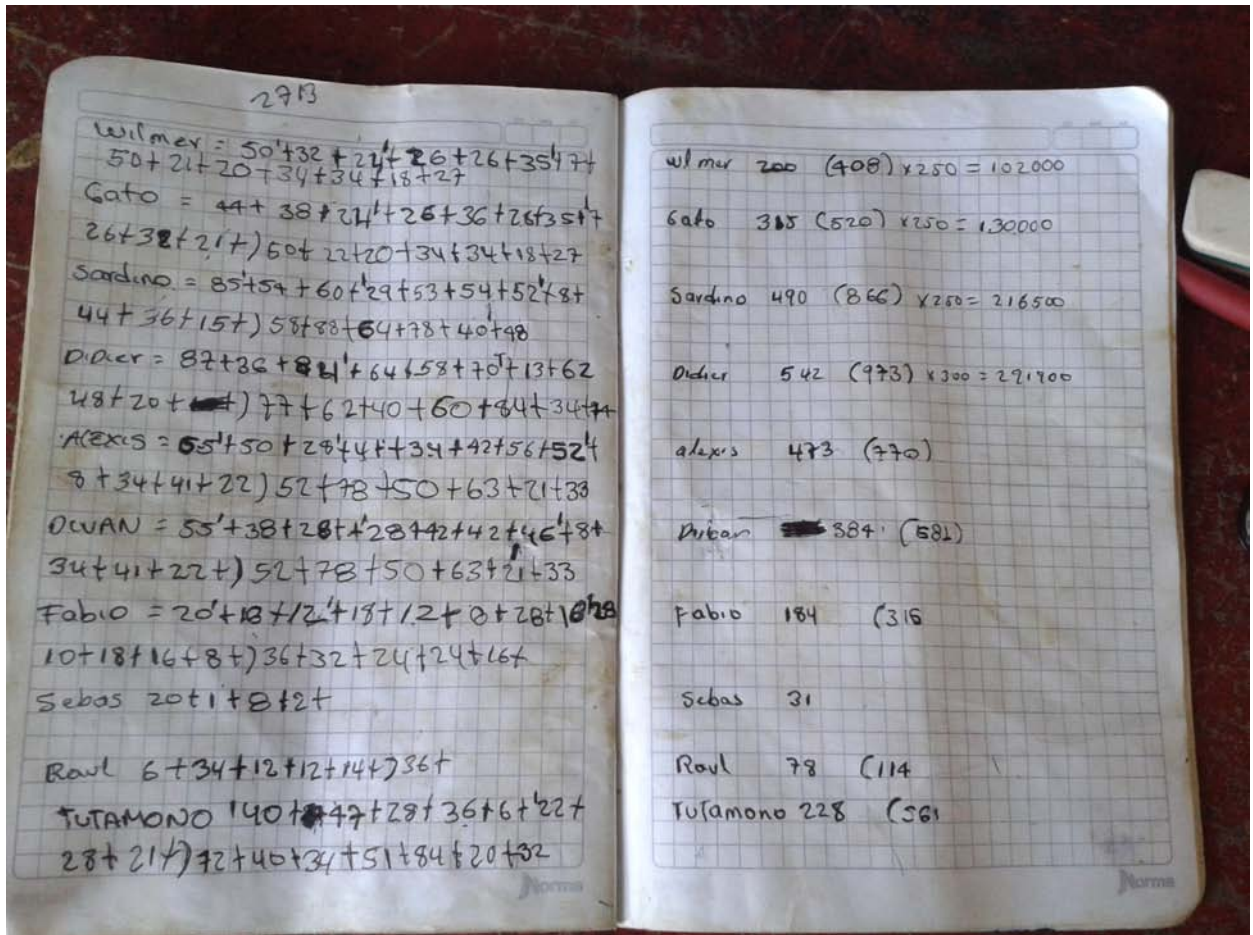 2713
Wilmer = 50'+32 +24'+ 26+26+35'47+
50+21+20+34+34+18+27
Gato = 44+ 38+24'+26+36+26+35'+7
26+32+21+) 60+22+20+34+34+18+27
Sardino = 85'+54+60+'29+53+54+52'+8+
44+36+15+) 58+88+64+78+40'+48
Didier = 87+36+84'+64+58+70'+13+62
48+20+ +) 77+62+40+60+84+34+74
Alexis = 65'+50+28'+4++34+42+56+52'+
8+34+41+22) 52+78+50+63+21+33
DUVAN = 55'+38+28++'28+42+42+46'+8+
34+41+22+) 52+78+50+63+21+33
Fabio = 20'+18+12'+18+12+8+28+18'28
10+18+16+8+) 36+32+24+24+16+
Sebas 20+1+8+2+
Raul 6+34+12+12+14+) 36+
TUTAMONO '40+47+28+36+6+'22+
28+21+) 72+40+34+51+84+20+32
Norma
Wilmer 200 (408) x250 = 102000
Gato 315 (520) x250 = 130000
Sardino 490 (866) x250= 216500
Didier 542 (973) x300 = 291900
alexis 473 (770)
Duban 384. (581)
Fabio 184 (316
Sebas 31
Raul 78 (114
Tutamono 228 (561
Norma